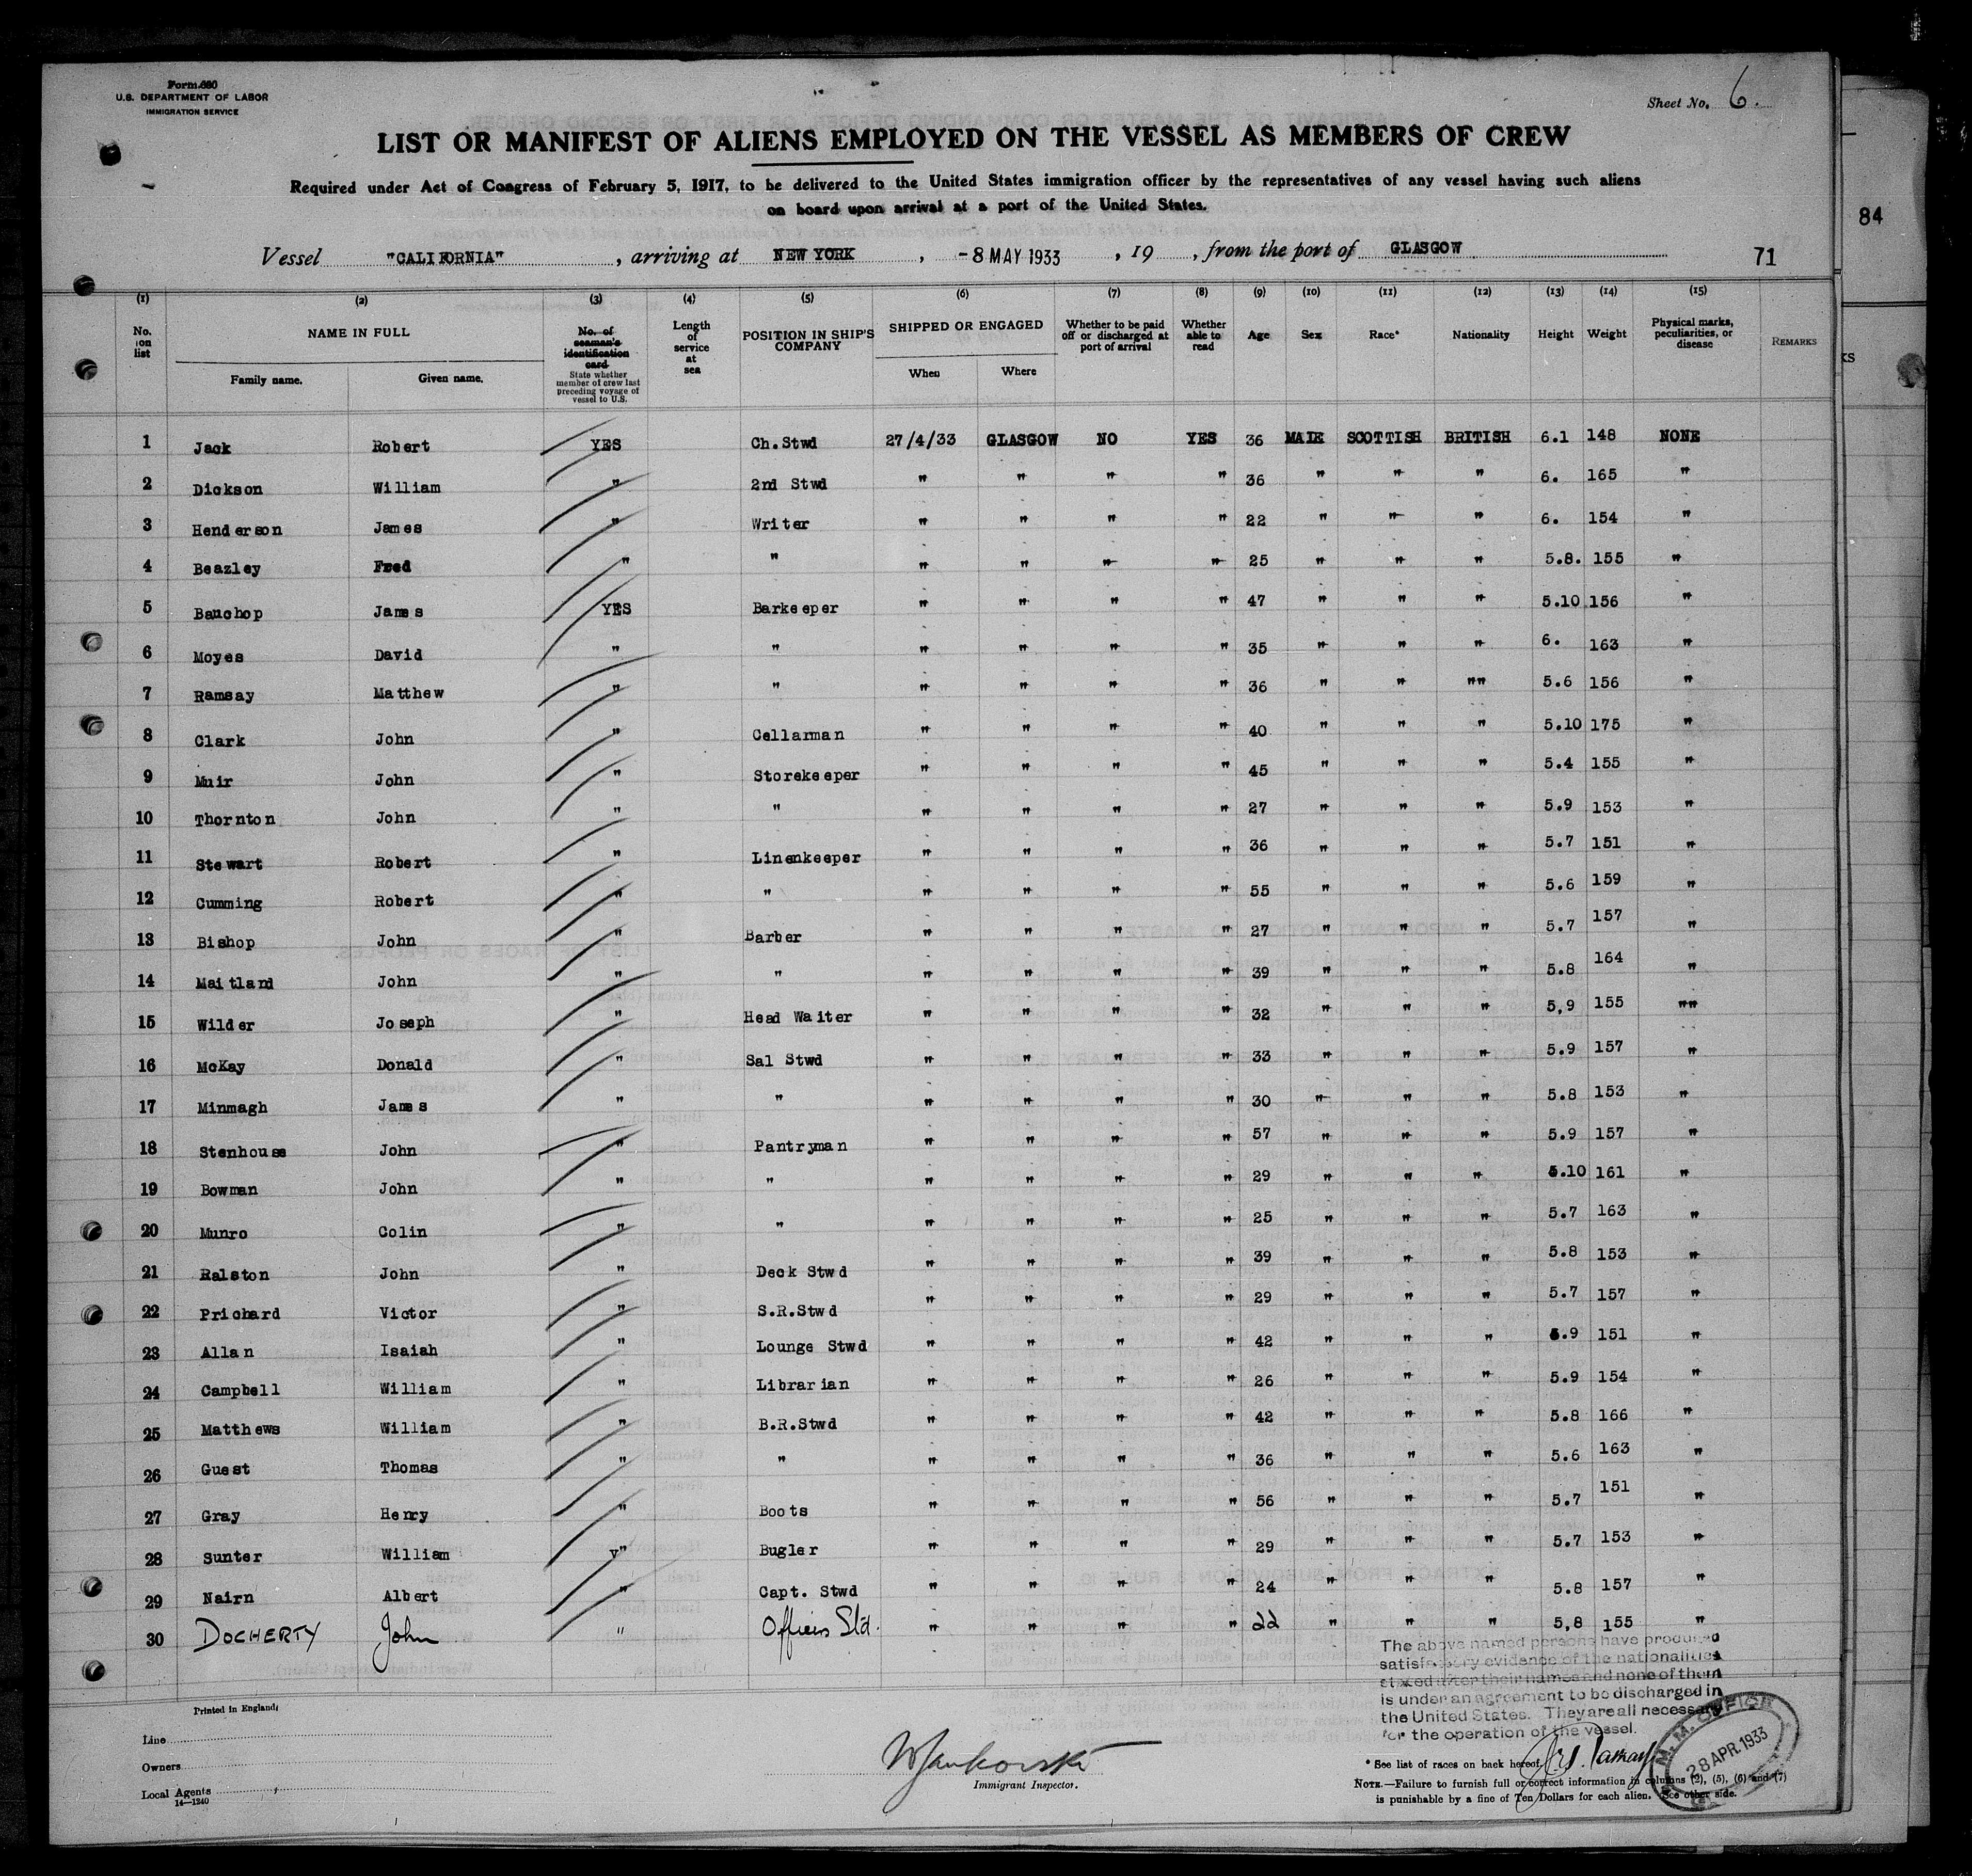 Form 680
U.S. DEPARTMENT OF LABOR
IMMIGRATION SERVICE
Sheet No. 6.
LIST OR MANIFEST OF ALIENS EMPLOYED ON THE VESSEL AS MEMBERS OF CREW
Required under Act of Congress of February 5, 1917, to be delivered to the United States immigration officer by the representatives of any vessel having such aliens
on board upon arrival at a port of the United States.
84
Vessel "CALIFORNIA", arriving at NEW YORK, -8 MAY 1933, 19 , from the port of GLASGOW 71
(1) (2) (3) (4) (5) (6) (7) (8) (9) (10) (11) (12) (13) (14) (15)
No. on list NAME IN FULL Family name. Given name. No. of seaman's identification card State whether member of crew last preceding voyage of vessel to U.S. Length of service at sea POSITION IN SHIP'S COMPANY SHIPPED OR ENGAGED When Where Whether to be paid off or discharged at port of arrival Whether able to read Age Sex Race* Nationality Height Weight Physical marks, peculiarities, or disease REMARKS
KS
1 Jack Robert YES Ch.Stwd 27/4/33 GLASGOW NO YES 36 MALE SCOTTISH BRITISH 6.1 148 NONE
2 Dickson William " 2nd Stwd " " " " 36 " " " 6. 165 "
3 Henderson James " Writer " " " " 22 " " " 6. 154 "
4 Beazley Fred " " " " " " 25 " " " 5.8. 155 "
5 Bauchop James YES Barkeeper " " " " 47 " " " 5.10 156 "
6 Moyes David " " " " " " 35 " " " 6. 163 "
7 Ramsay Matthew " " " " " " 36 " " "" 5.6 156 "
8 Clark John " Cellarman " " " " 40 " " " 5.10 175 "
9 Muir John " Storekeeper " " " " 45 " " " 5.4 155 "
10 Thornton John " " " " " " 27 " " " 5.9 153 "
11 Stewart Robert " Linenkeeper " " " " 36 " " " 5.7 151 "
12 Cumming Robert " " " " " " 55 " " " 5.6 159 "
13 Bishop John " Barber " " " " 27 " " " 5.7 157 "
14 Maitland John " " " " " " 39 " " " 5.8 164 "
15 Wilder Joseph " Head Waiter " " " " 32 " " " 5,9 155 ""
16 McKay Donald " Sal Stwd " " " " 33 " " " 5.9 157 "
17 Minmagh James " " " " " " 30 " " " 5.8 153 "
18 Stenhouse John " Pantryman " " " " 57 " " " 5.9 157 "
19 Bowman John " " " " " " 29 " " " 5.10 161 "
20 Munro Colin " " " " " " 25 " " " 5.7 163 "
21 Ralston John " Deck Stwd " " " " 39 " " " 5.8 153 "
22 Prichard Victor " S.R.Stwd " " " " 29 " " " 5.7 157 "
23 Allan Isaiah " Lounge Stwd " " " " 42 " " " 5.9 151 "
24 Campbell William " Librarian " " " " 26 " " " 5.9 154 "
25 Matthews William " B.R.Stwd " " " " 42 " " " 5.8 166 "
26 Guest Thomas " " " " " " 36 " " " 5.6 163 "
27 Gray Henry " Boots " " " " 56 " " " 5.7 151 "
28 Sunter William v" Bugler " " " " 29 " " " 5.7 153 "
29 Nairn Albert " Capt. Stwd " " " " 24 " " " 5.8 157 "
30 DOCHERTY John " Officers Std. " " " " 22 " " " 5,8 155 "
The above named persons have produced
satisfactory evidence of the nationalities
stated after their names and none of them
is under an agreement to be discharged in
the United States. They are all necessary
for the operation of the vessel.
Printed in England.
Line
Owners
Local Agents
14—1240
Immigrant Inspector.
M. M. OFFICE
28 APR. 1933
* See list of races on back hereof.
NOTE.—Failure to furnish full or correct information in columns (2), (5), (6) and (7)
is punishable by a fine of Ten Dollars for each alien. See other side.